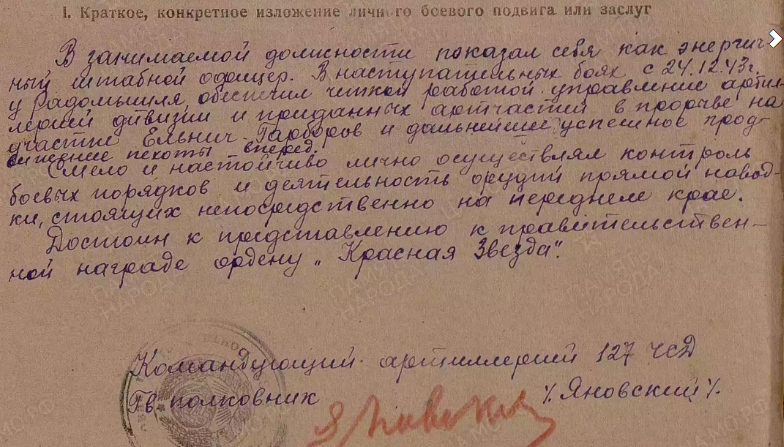 I. Краткое, конкретное изложение личного боевого подвига или заслуг
В занимаемой должности показал себя как энергич-
ный штабной офицер. В наступательных боях с 24.12.43г.
у Радомышля, обеспечил чёткой работой управление арти-
ллерией дивизии и приданных артчастей в прорыве на
участке Ельнич-Гарборов и дальнейшее успешное прод-
вижение пехоты вперед.
Смело и настойчиво лично осуществлял контроль
боевых порядков и деятельность орудий прямой навод-
ки, стоящих непосредственно на переднем крае.
Достоин к представлению к правительствен-
ной награде ордену „Красная Звезда".
Командующий артиллерией 127 ЧСД
Гв. полковник /. Яновский /.